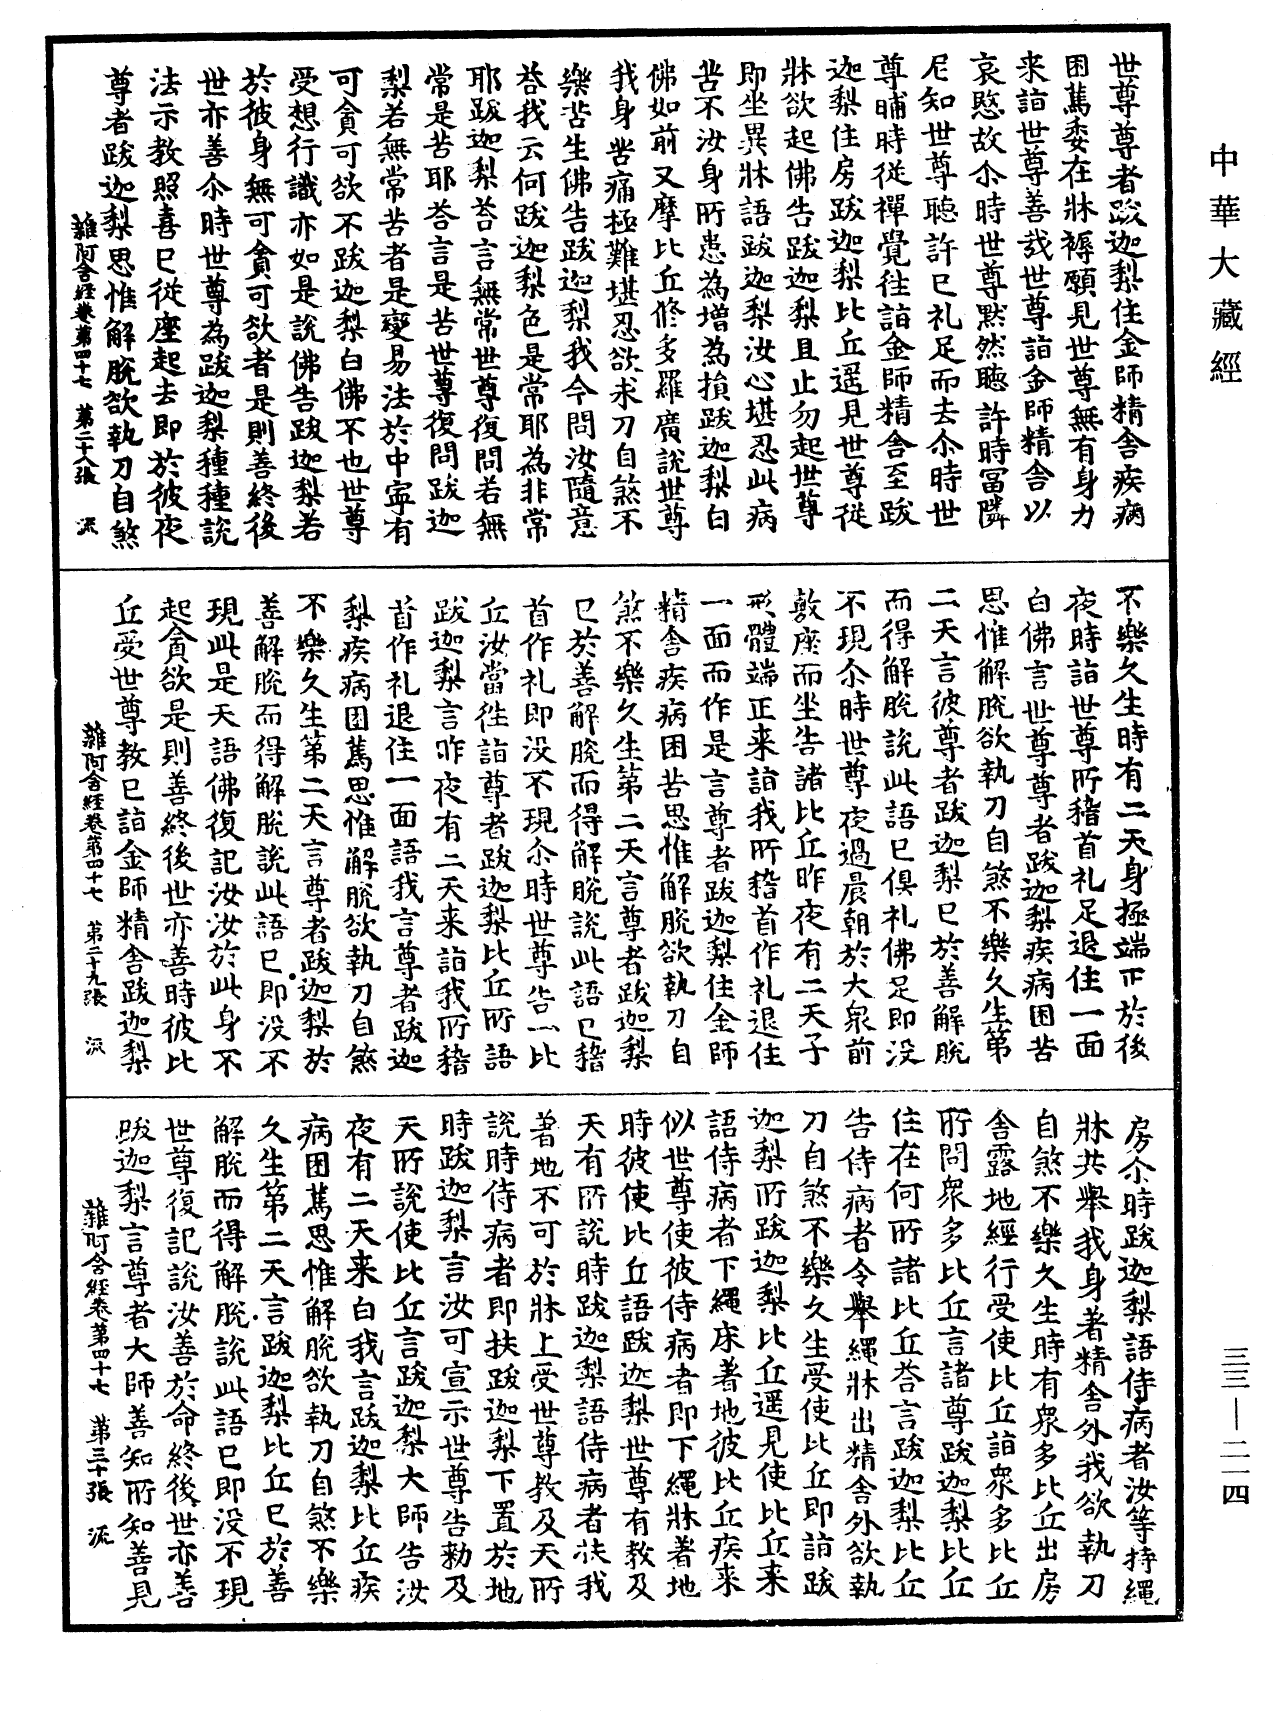 中華大藏經
世尊尊者跋迦梨住金師精舍疾病
困篤委在牀褥願見世尊無有身力
来詣世尊善哉世尊詣金師精舍以
哀愍故尒時世尊默然聽許時富隣
尼知世尊聽許已礼足而去尒時世
尊晡時從禪覺往詣金師精舍至跋
迦梨住房跋迦梨比丘遥見世尊從
牀欲起佛告跋迦梨且止勿起世尊
即坐異牀語跋迦梨汝心堪忍此病
苦不汝身所患為增為損跋迦梨白
佛如前叉摩比丘修多羅廣說世尊
我身苦痛極難堪忍欲求刀自煞不
樂苦生佛告跋迦梨我今問汝隨意
荅我云何跋迦梨色是常耶為非常
耶跋迦梨荅言無常世尊復問若無
常是苦耶荅言是苦世尊復問跋迦
梨若無常苦者是變易法於中寧有
可貪可欲不跋迦梨白佛不也世尊
受想行識亦如是說佛告跋迦梨若
於彼身無可貪可欲者是則善終後
世亦善尒時世尊為跋迦梨種種說
法示教照喜已從座起去即於彼夜
尊者跋迦梨思惟解脫欲執刀自煞
雜阿含經卷第四十七 第二十八張 流
不樂久生時有二天身極端正於後
夜時詣世尊所稽首礼足退住一面
白佛言世尊尊者跋迦梨疾病困苦
思惟解脫欲執刀自煞不樂久生第
二天言彼尊者跋迦梨已於善解脫
而得解脫說此語已俱礼佛足即没
不現尒時世尊夜過晨朝於大衆前
敷座而坐告諸比丘昨夜有二天子
形體端正来詣我所稽首作礼退住
一面而作是言尊者跋迦梨住金師
精舍疾病困苦思惟解脫欲執刀自
煞不樂久生第二天言尊者跋迦梨
已於善解脫而得解脫說此語已稽
首作礼即没不現尒時世尊告一比
丘汝當往詣尊者跋迦梨比丘所語
跋迦梨言昨夜有二天来詣我所稽
首作礼退住一面語我言尊者跋迦
梨疾病困篤思惟解脫欲執刀自煞
不樂久生第二天言尊者跋迦梨於
善解脫而得解脫說此語已即没不
現此是天語佛復記汝汝於此身不
起貪欲是則善終後世亦善時彼比
丘受世尊教已詣金師精舍跋迦梨
雜阿含經卷第四十七 第二十九張 流
房尒時跋迦梨語侍病者汝等持繩
牀共舉我身著精舍外我欲執刀
自煞不樂久生時有衆多比丘出房
舍露地經行受使比丘詣衆多比丘
所問衆多比丘言諸尊跋迦梨比丘
住在何所諸比丘荅言跋迦梨比丘
告侍病者令舉繩牀出精舍外欲執
刀自煞不樂久生受使比丘即詣跋
迦梨所跋迦梨比丘遥見使比丘来
語侍病者下繩床著地彼比丘疾来
似世尊使彼侍病者即下繩牀著地
時彼使比丘語跋迦梨世尊有教及
天有所說時跋迦梨語侍病者扶我
著地不可於牀上受世尊教及天所
說時侍病者即扶跋迦梨下置於地
時跋迦梨言汝可宣示世尊告勅及
天所說使比丘言跋迦梨大師告汝
夜有二天来白我言跋迦梨比丘疾
病困篤思惟解脫欲執刀自煞不樂
久生第二天言跋迦梨比丘已於善
解脫而得解脫說此語已即没不現
世尊復記說汝善於命終後世亦善
跋迦梨言尊者大師善知所知善見
雜阿含經卷第四十七 第三十張 流
三三—二一四